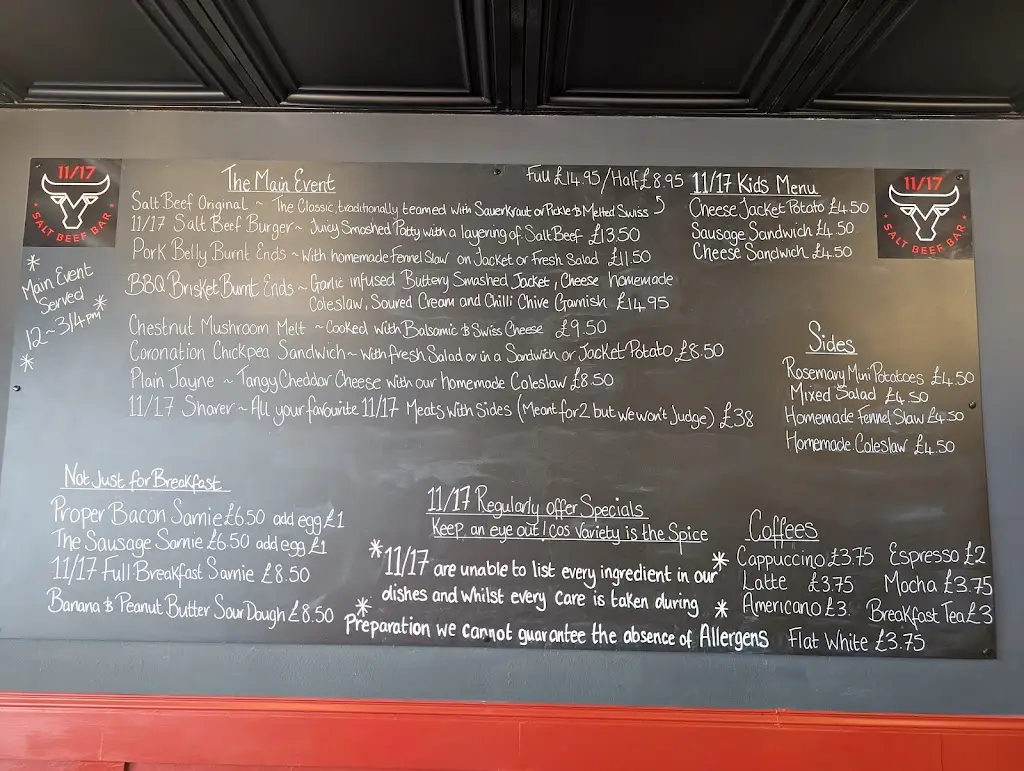 11/17
SALT BEEF BAR
* Main Event
Served
12~3/4pm *
*
The Main Event
Full £14.95/Half £8.95
Salt Beef Original ~ The Classic, traditionally teamed with Sauerkraut or Pickle & Melted Swiss
11/17 Salt Beef Burger ~ Juicy Smashed Patty with a layering of Salt Beef £13.50
Pork Belly Burnt Ends ~ With homemade Fennel Slaw on Jacket or Fresh Salad £11.50
BBQ Brisket Burnt Ends ~ Garlic infused Buttery Smashed Jacket, Cheese homemade
Coleslaw, Soured Cream and Chilli Chive Garnish £14.95
Chestnut Mushroom Melt ~ Cooked with Balsamic & Swiss Cheese £9.50
Coronation Chickpea Sandwich ~ with fresh Salad or in a Sandwich or Jacket Potato £8.50
Plain Jayne ~ Tangy Cheddar Cheese with our homemade Coleslaw £8.50
11/17 Sharer ~ All your favourite 11/17 Meats with Sides (Meant for 2 but we won't Judge) £38
11/17 Kids Menu
Cheese Jacket Potato £4.50
Sausage Sandwich £4.50
Cheese Sandwich £4.50
11/17
SALT BEEF BAR
Sides
Rosemary Mini Potatoes £4.50
Mixed Salad £4.50
Homemade Fennel Slaw £4.50
Homemade Coleslaw £4.50
Not Just for Breakfast
Proper Bacon Sarnie £6.50 add egg £1
The Sausage Sarnie £6.50 add egg £1
11/17 Full Breakfast Sarnie £8.50
Banana & Peanut Butter Sour Dough £8.50
11/17 Regularly offer Specials
Keep an eye out / Cos Variety is the Spice
* 11/17 are unable to list every ingredient in our *
dishes and whilst every care is taken during *
* Preparation we cannot guarantee the absence of Allergens
Coffees
Cappuccino £3.75 Espresso £2
Latte £3.75 Mocha £3.75
Americano £3. Breakfast Tea £3
Flat White £3.75